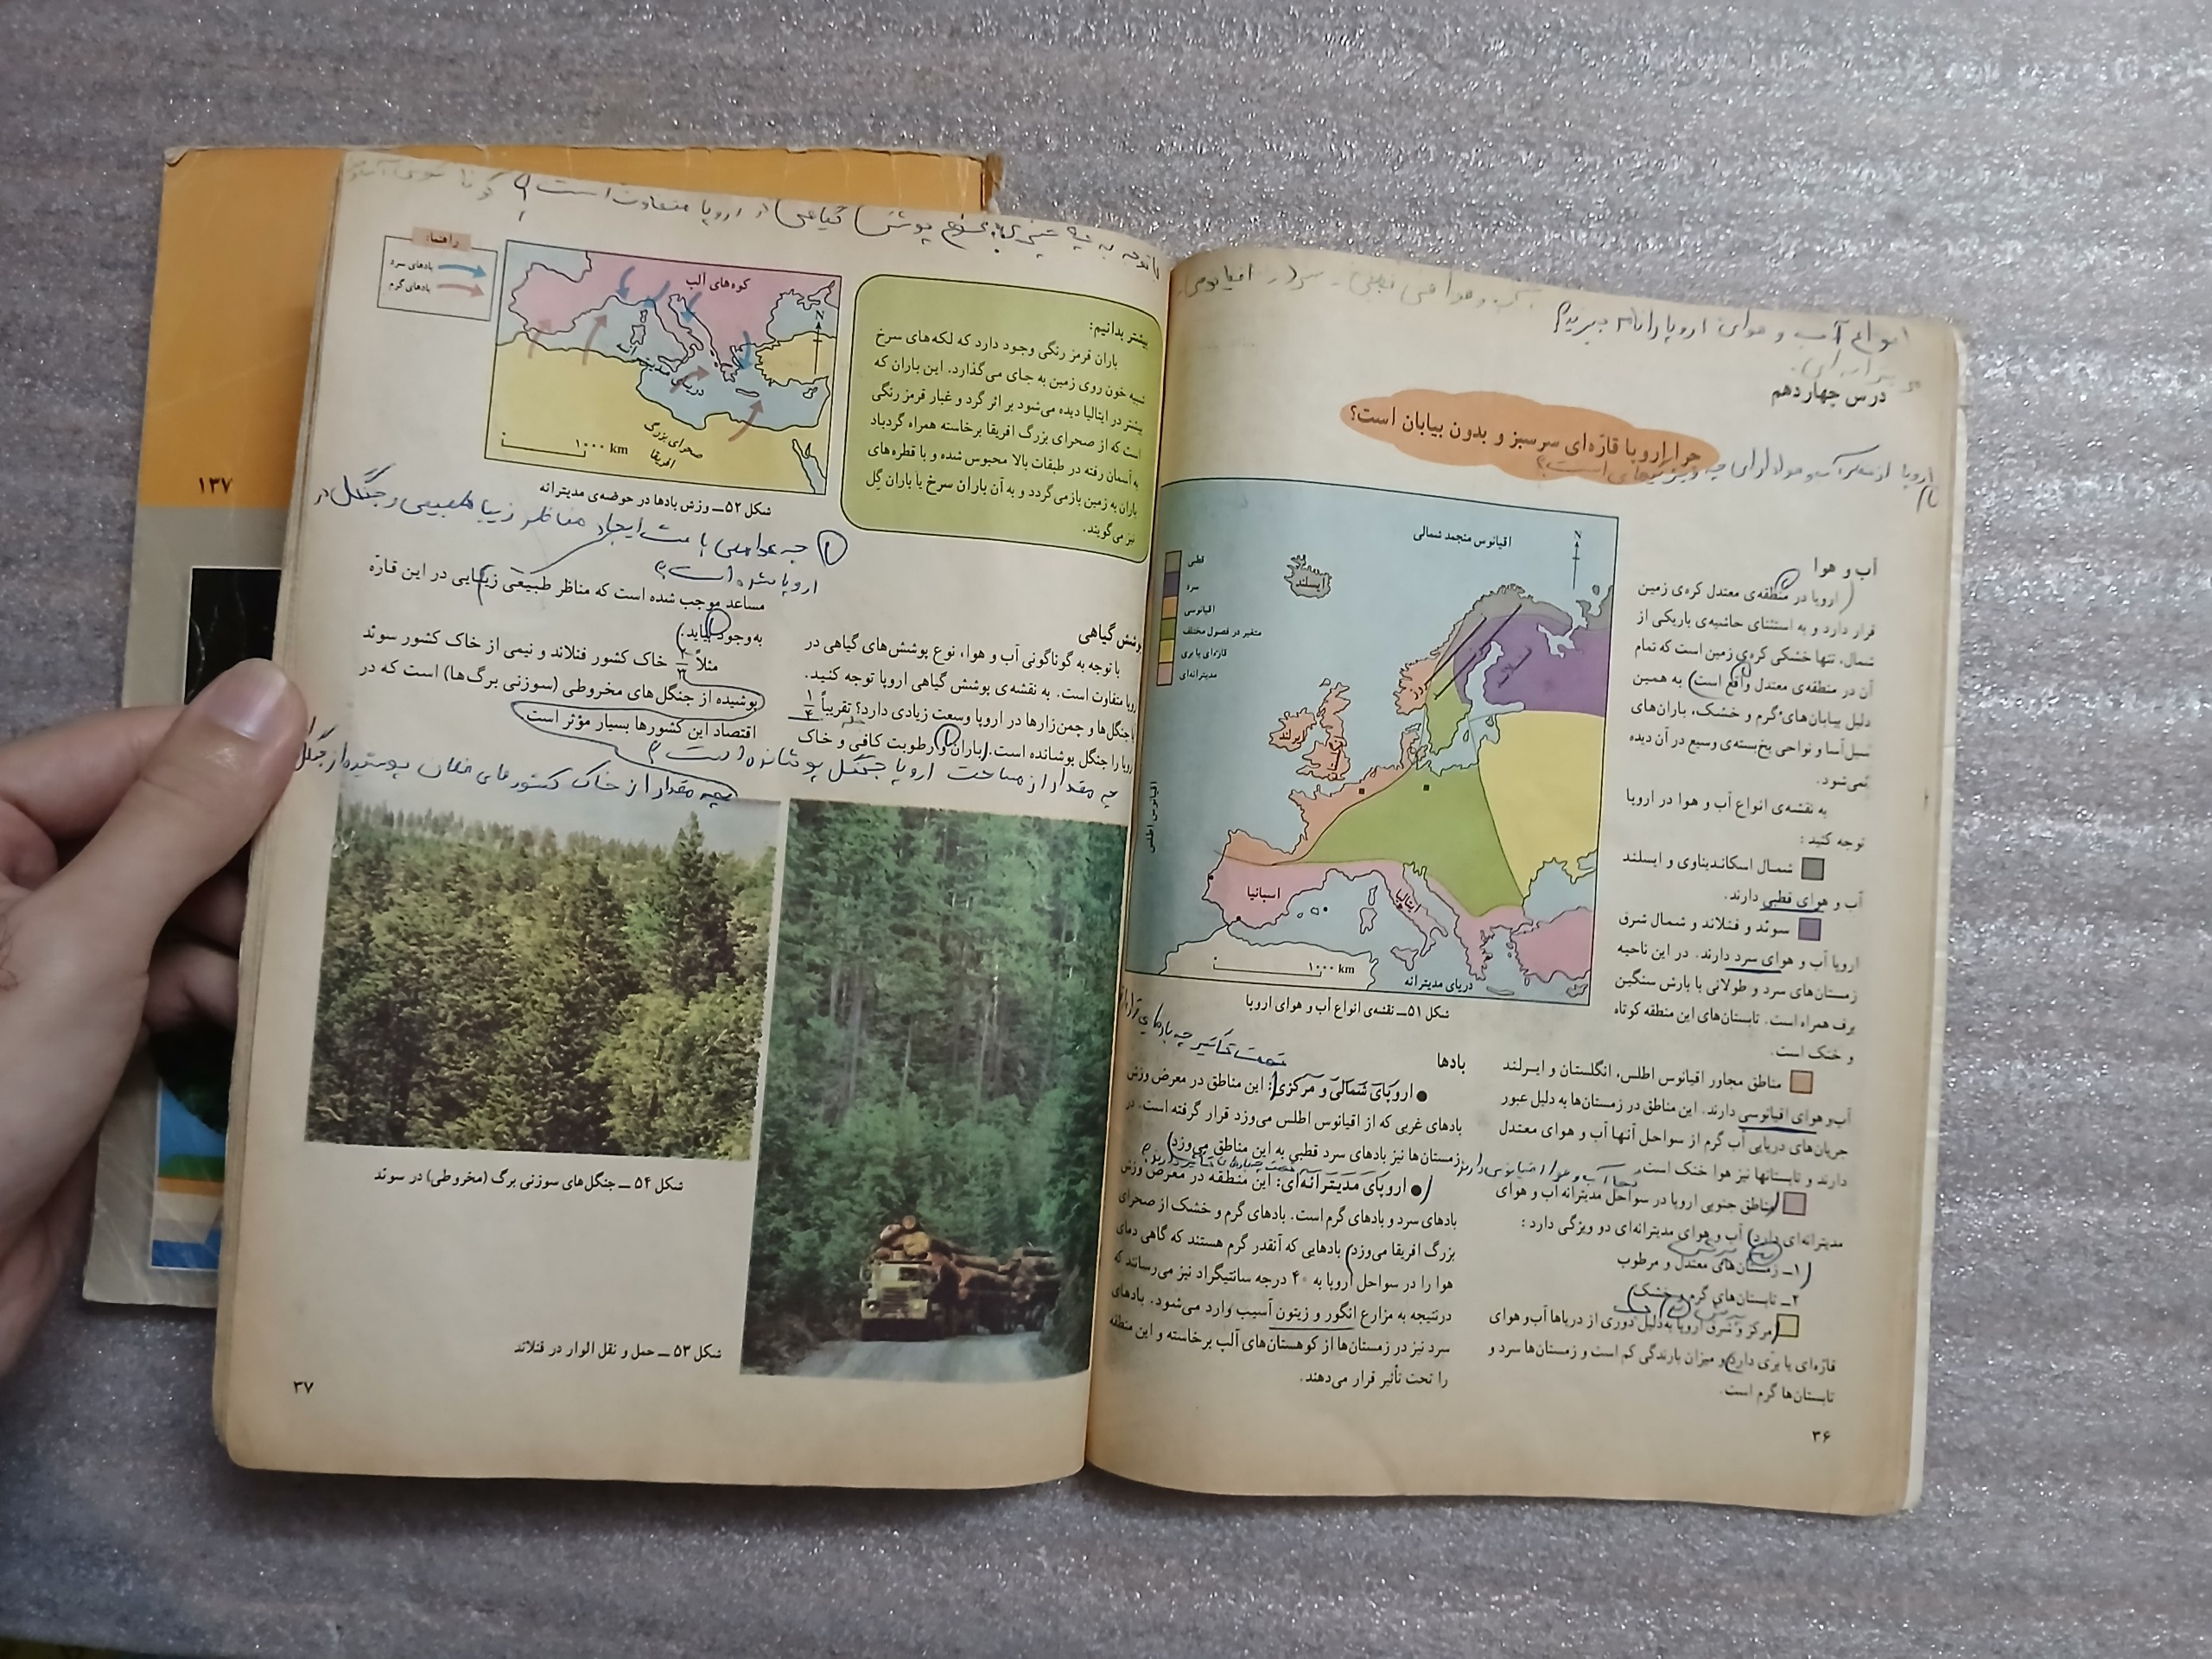 انواع آب و هوای اروپا را نام ببرید؟
درس چهاردهم
چرا اروپا قاره‌ای سرسبز و بدون بیابان است؟
آب و هوا
اروپا در منطقه‌ی معتدل کره‌ی زمین
قرار دارد و به استثنای حاشیه‌ی باریکی از
شمال، تنها خشکی کره‌ی زمین است که تمام
آن در منطقه‌ی معتدل واقع است) به همین
دلیل بیابان‌های گرم و خشک، باران‌های
سیل‌آسا و نواحی یخ‌بسته‌ی وسیع در آن دیده
نمی‌شود.
به نقشه‌ی انواع آب و هوا در اروپا
توجه کنید :
شمال اسکاندیناوی و ایسلند
آب و هوای قطبی دارند.
سوئد و فنلاند و شمال شرق
اروپا آب و هوای سرد دارند. در این ناحیه
زمستان‌های سرد و طولانی با بارش سنگین
برف همراه است. تابستان‌های این منطقه کوتاه
و خنک است.
مناطق مجاور اقیانوس اطلس، انگلستان و ایرلند
آب‌و هوای اقیانوسی دارند. این مناطق در زمستان‌ها به دلیل عبور
جریان‌های دریایی آب گرم از سواحل آنها آب و هوای معتدل
دارند و تابستانها نیز هوا خنک است.
مناطق جنوبی اروپا در سواحل مدیترانه آب و هوای
مدیترانه‌ای دارد) آب و هوای مدیترانه‌ای دو ویژگی دارد :
۱ــ زمستان‌های معتدل و مرطوب
۲ــ تابستان‌های گرم و خشک)
مرکز و شرق اروپا به‌دلیل دوری از دریاها آب‌و هوای
قاره‌ای یا بری دارد) و میزان بارندگی کم است و زمستان‌ها سرد و
تابستان‌ها گرم است.
اقیانوس منجمد شمالی
N
ایسلند
قطبی
سرد
اقیانوسی
متغیر در فصول مختلف
قاره‌ای یا بری
مدیترانه‌ای
ایرلند
اقیانوس اطلس
اسپانیا
ایتالیا
۱۰۰۰ km
دریای مدیترانه
شکل ۵۱ــ نقشه‌ی انواع آب و هوای اروپا
بادها
● اروپای شمالی و مرکزی: این مناطق در معرض وزش
بادهای غربی که از اقیانوس اطلس می‌وزد قرار گرفته است. در
زمستان‌ها نیز بادهای سرد قطبی به این مناطق می‌وزد)
● اروپای مدیترانه‌ای: این منطقه در معرض وزش
بادهای سرد و بادهای گرم است. بادهای گرم و خشک از صحرای
بزرگ افریقا می‌وزد) بادهایی که آنقدر گرم هستند که گاهی دمای
هوا را در سواحل اروپا به ۴۰ درجه سانتیگراد نیز می‌رسانند که
درنتیجه به مزارع انگور و زیتون آسیب وارد می‌شود. بادهای
سرد نیز در زمستان‌ها از کوهستان‌های آلپ برخاسته و این منطقه
را تحت تأثیر قرار می‌دهند.
۳۶
بیشتر بدانیم:
باران قرمز رنگی وجود دارد که لکه‌های سرخ
شبیه خون روی زمین به جای می‌گذارد. این باران که
بیشتر در ایتالیا دیده می‌شود بر اثر گرد و غبار قرمز رنگی
است که از صحرای بزرگ افریقا برخاسته همراه گردباد
به آسمان رفته در طبقات بالا محبوس شده و با قطره‌های
باران به زمین بازمی‌گردد و به آن باران سرخ یا باران گل
نیز می‌گویند.
راهنما:
بادهای سرد
بادهای گرم
کوه‌های آلپ
N
دریای مدیترانه
صحرای بزرگ
افریقا
۱۰۰۰ km
شکل ۵۲ــ وزش بادها در حوضه‌ی مدیترانه
چه عواملی باعث ایجاد مناظر زیبا طبیعی و جنگل در
اروپا شده است؟
پوشش گیاهی
با توجه به گوناگونی آب و هوا، نوع پوشش‌های گیاهی در
اروپا متفاوت است. به نقشه‌ی پوشش گیاهی اروپا توجه کنید.
آیا جنگل‌ها و چمن‌زارها در اروپا وسعت زیادی دارد؟ تقریباً ۱/۴
اروپا را جنگل پوشانده است. (باران و رطوبت کافی و خاک
مساعد موجب شده است که مناظر طبیعی زیبایی در این قاره
به‌وجود بیاید.)
مثلاً ۲/۳ خاک کشور فنلاند و نیمی از خاک کشور سوئد
پوشیده از جنگل‌های مخروطی (سوزنی برگ‌ها) است که در
اقتصاد این کشورها بسیار مؤثر است
چه مقدار از مساحت اروپا جنگل پوشانده است؟
چه مقدار از خاک کشورهای فنلان پوشیده از جنگل
شکل ۵۴ ــ جنگل‌های سوزنی برگ (مخروطی) در سوئد
شکل ۵۳ ــ حمل و نقل الوار در فنلاند
۳۷
۱۳۷